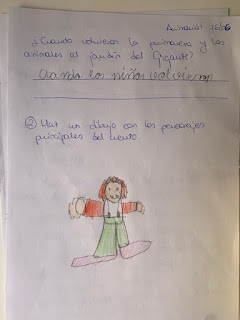 ¿Cuando volvieron la primavera y los
animales al jardín del Gigante?
Cuando los niños volvieron
② Haz un dibujo con los personajes
principales del cuento.